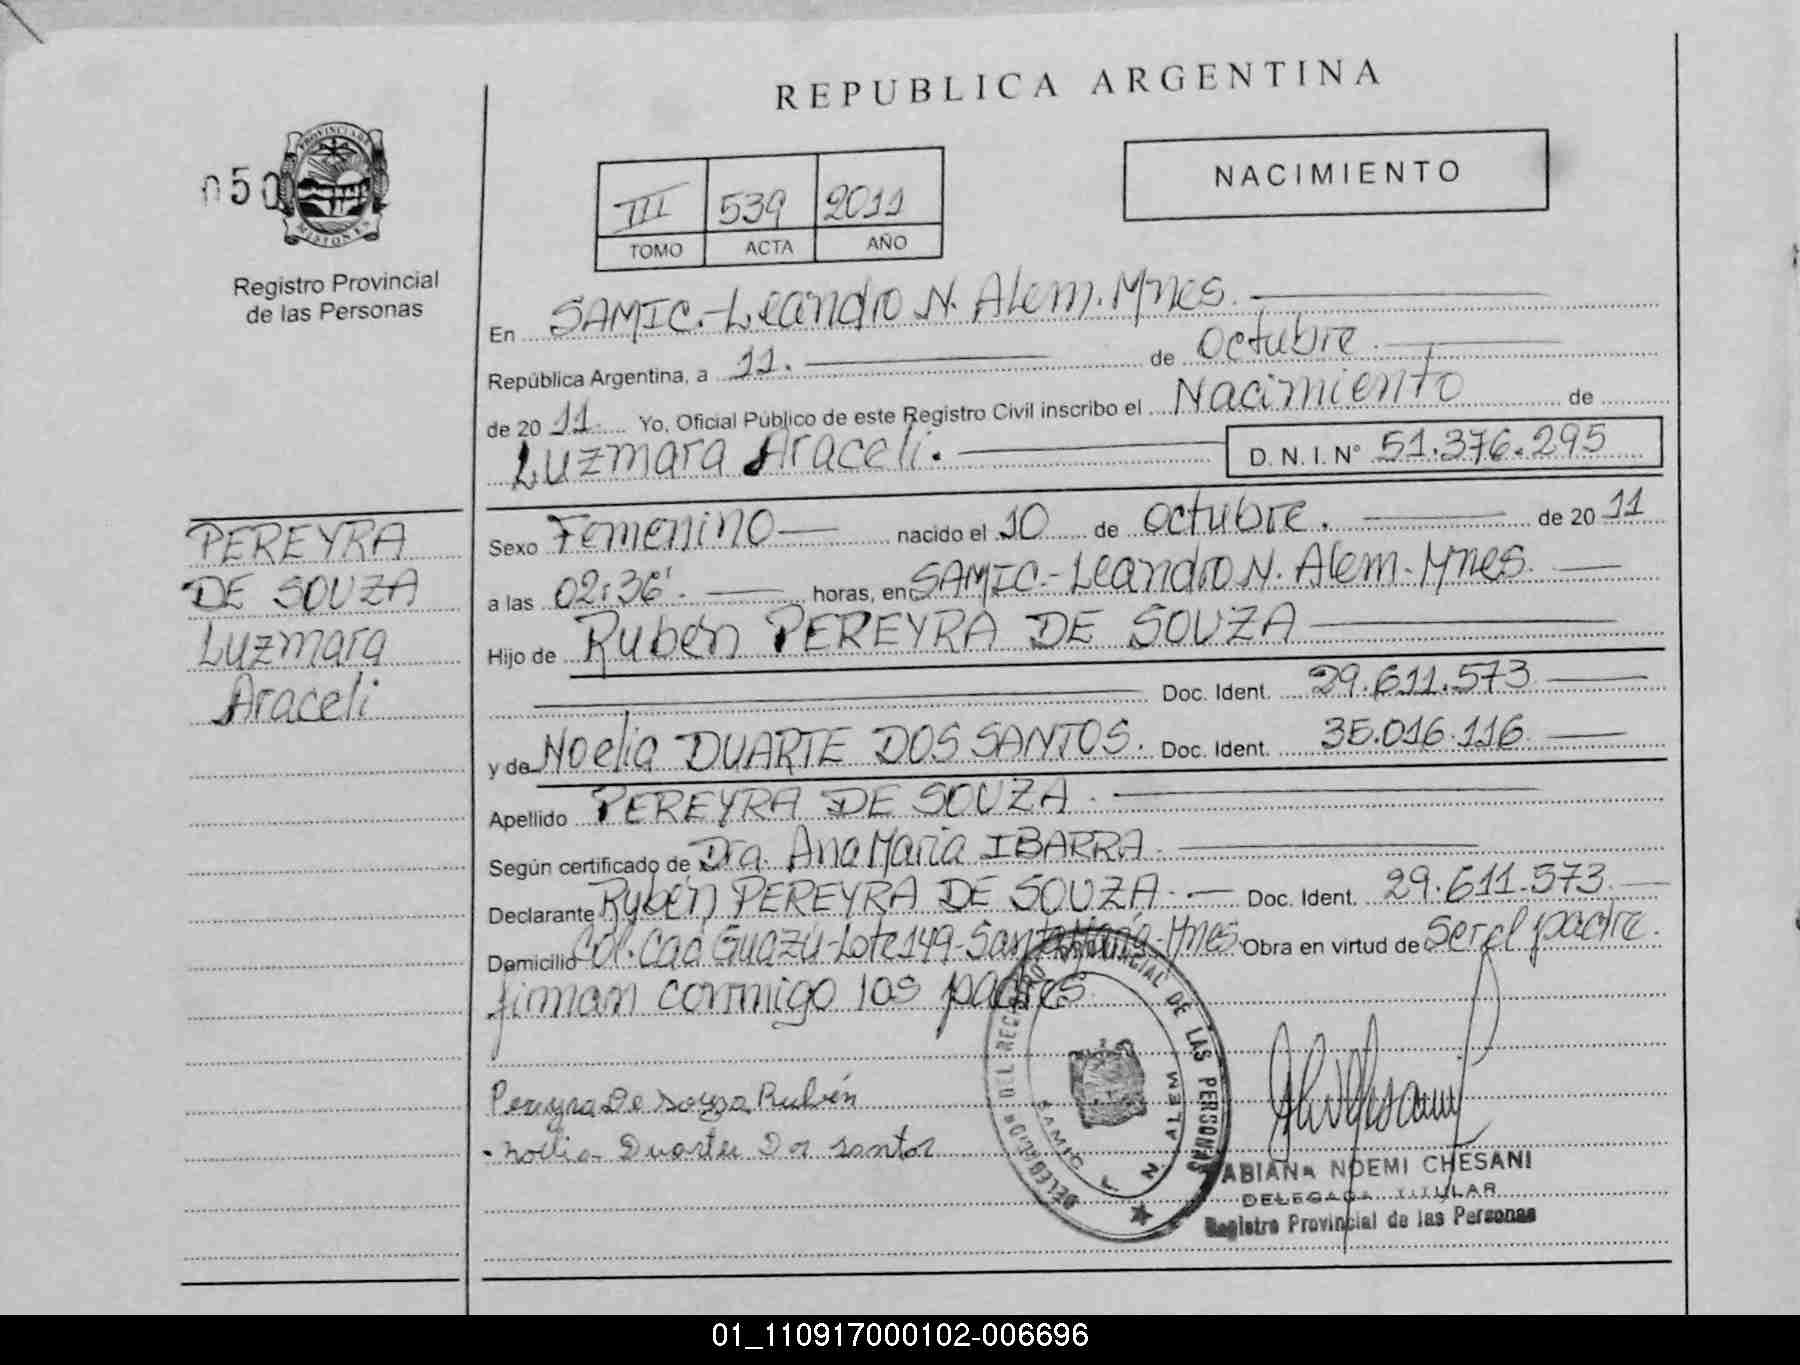 REPUBLICA ARGENTINA
NACIMIENTO
050
PROVINCIA DE
MISIONES
Registro Provincial
de las Personas
III 539 2011
TOMO ACTA AÑO
En SAMIC.-Leandro N. Alem. Mnes.
República Argentina, a 11. de Octubre
de 2011. Yo, Oficial Público de este Registro Civil inscribo el Nacimiento de
Luzmara Araceli. D. N. I. N° 51.376.295
PEREYRA
DE SOUZA
Luzmara
Araceli
Sexo Femenino nacido el 10 de octubre. de 2011
a las 02:36'. horas, en SAMIC.-Leandro N. Alem-Mnes.
Hijo de Rubén PEREYRA DE SOUZA
Doc. Ident. 29.611.573
y de Noelia DUARTE DOS SANTOS. Doc. Ident. 35.016.116
Apellido PEREYRA DE SOUZA.
Según certificado de Dra. Ana Maria IBARRA.
Declarante Rubén PEREYRA DE SOUZA. Doc. Ident. 29.611.573.
Domicilio Col. Caá Guazú-Lote 149-Santa María-Mnes. Obra en virtud de Ser el padre.
firman conmigo los padres
Pereyra De Souza Rubén
Noelia Duarte Dos santos
DELEGACION DEL REGISTRO PROVINCIAL DE LAS PERSONAS
SAMIC L N ALEM
FABIANA NOEMI CHESANI
DELEGADA TITULAR
Registro Provincial de las Personas
01_110917000102-006696